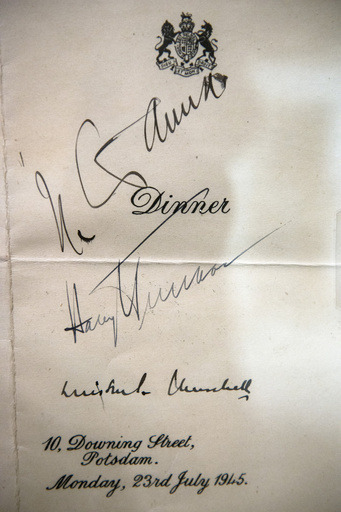 И. Сталин
Dinner
Harry Truman
Winston S. Churchill
10, Downing Street,
Potsdam.
Monday, 23rd July 1945.